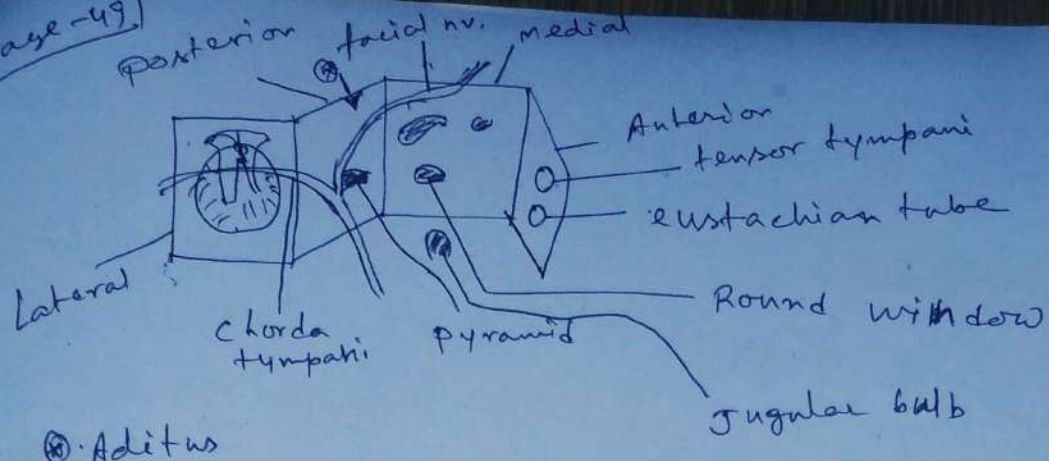 age-49)
posterior
facial nv.
medial
Anterior
tensor tympani
eustachian tube
Lateral
chorda
tympani
pyramid
Round window
Jugular bulb
⊛. Aditus